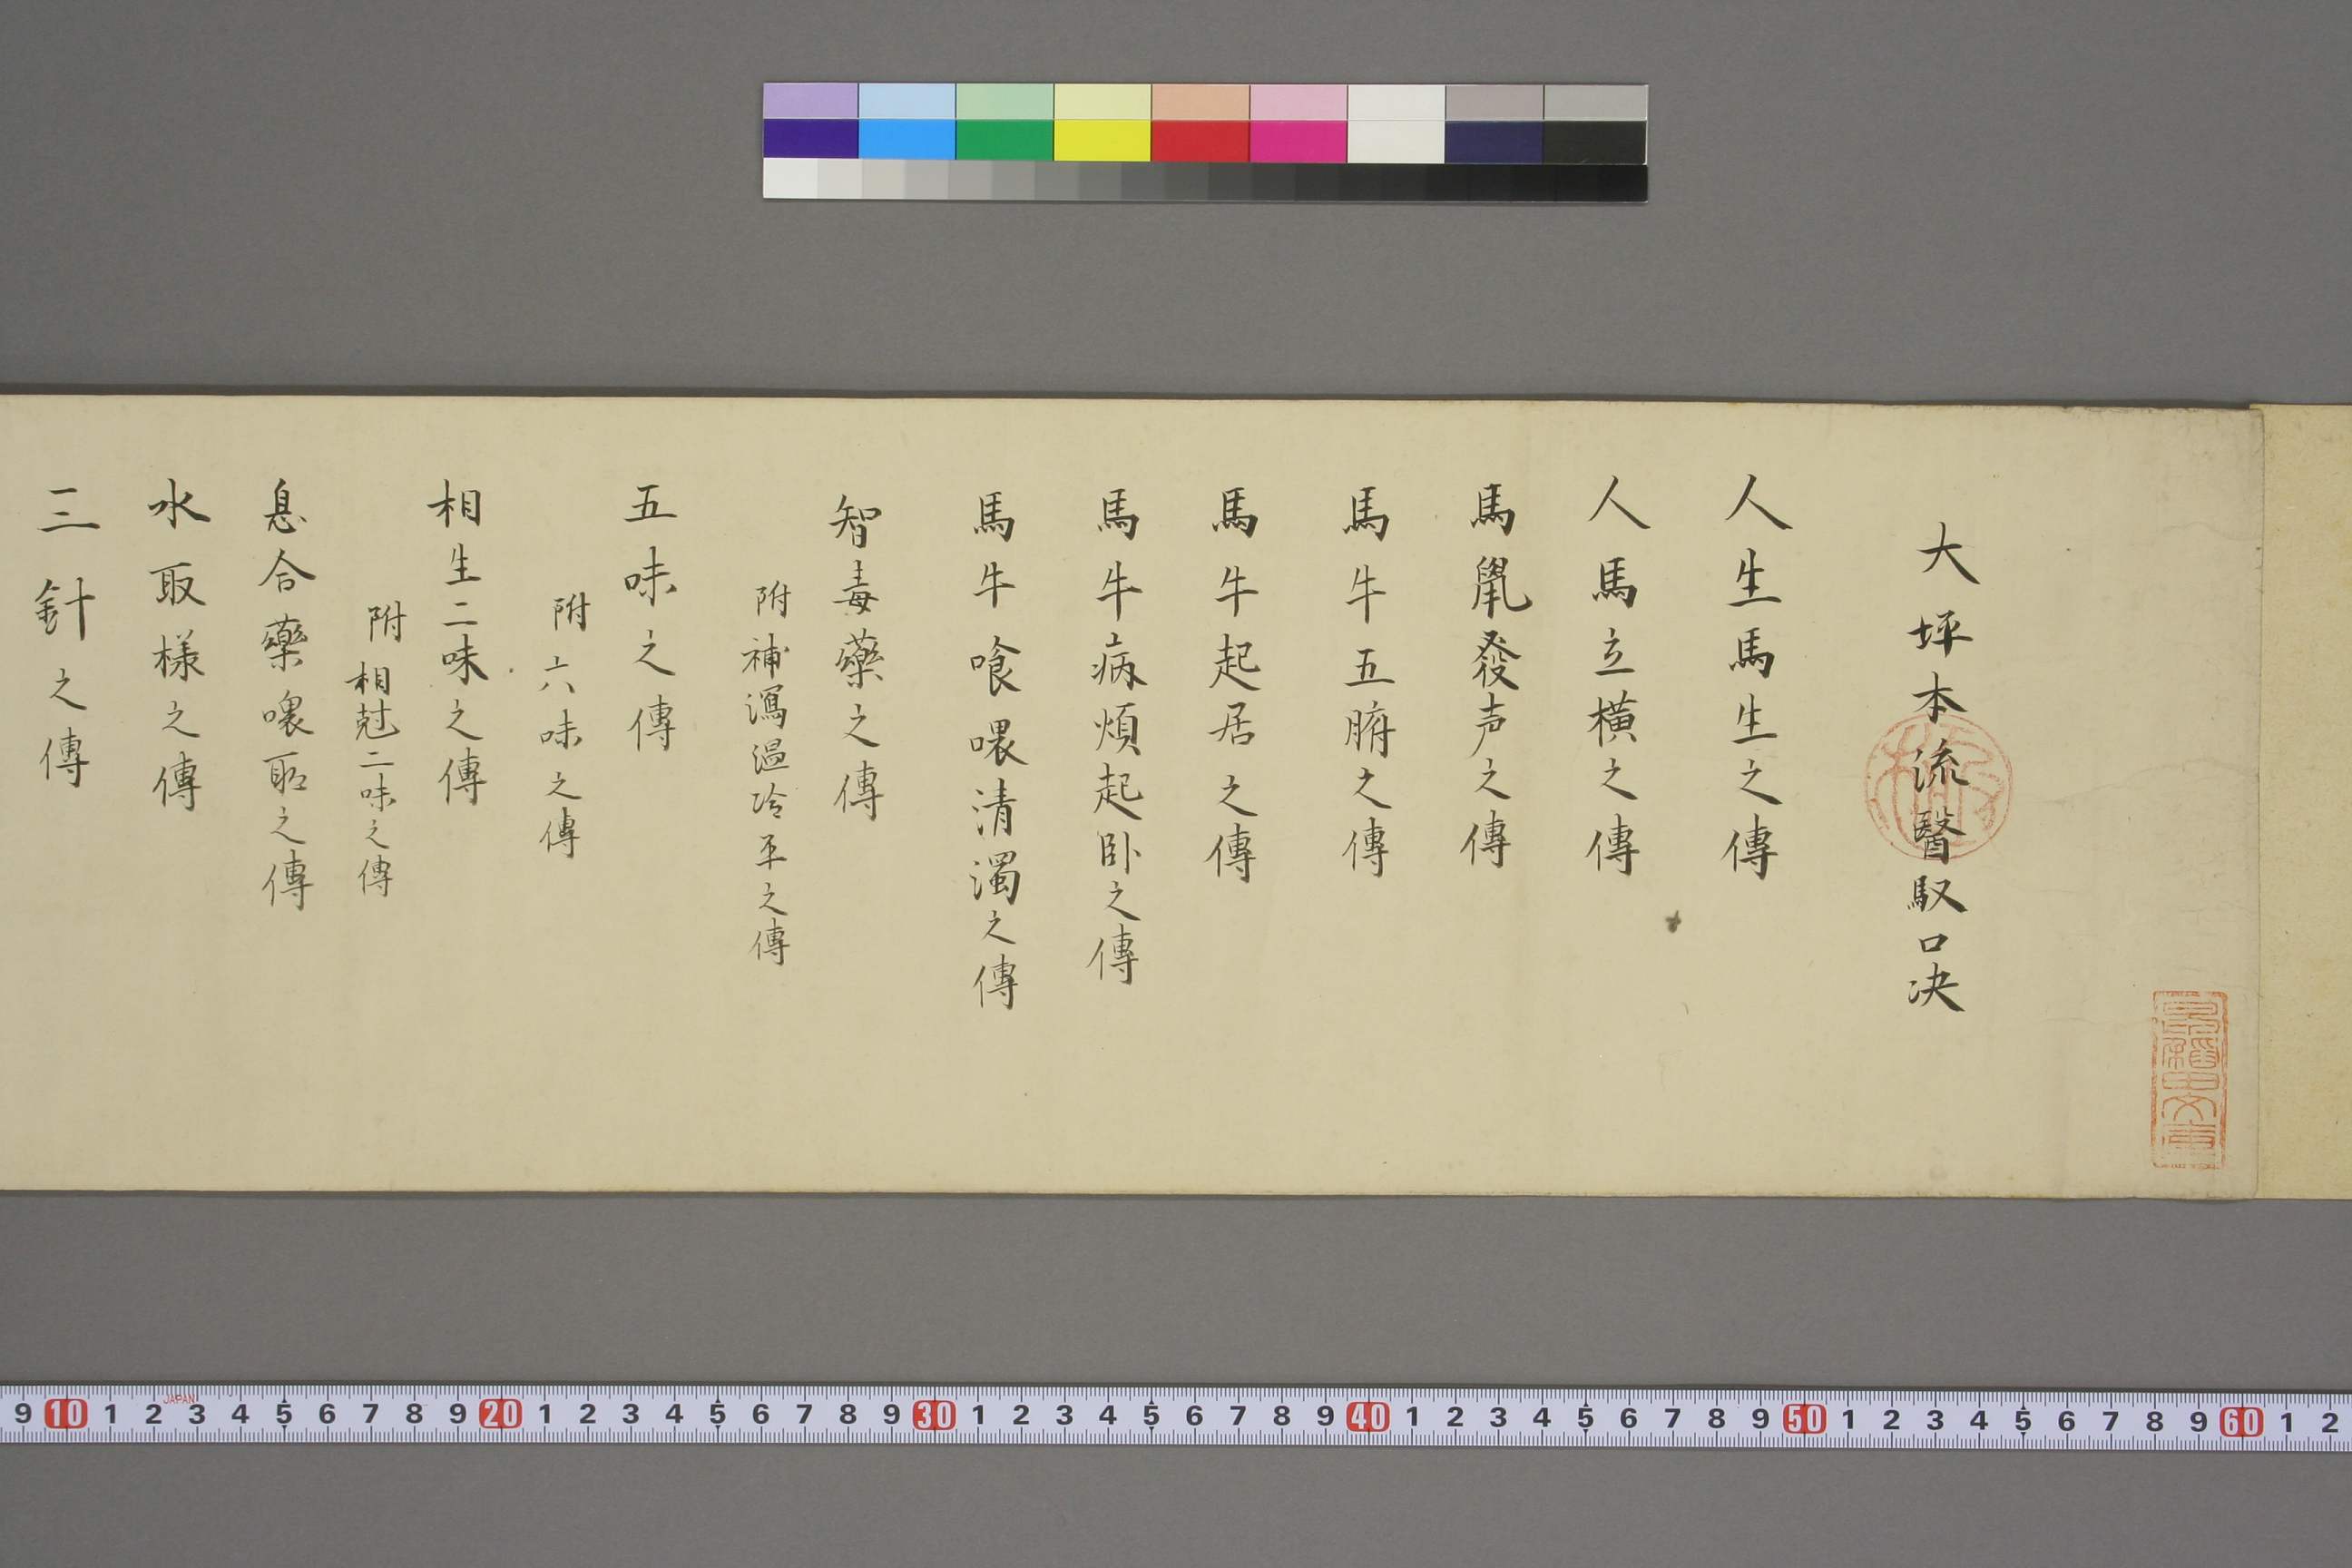 大坪本流醫馭口决
人生馬生之傳
人馬立横之傳
馬鼠發声之傳
馬牛五腑之傳
馬牛起居之傳
馬牛病煩起卧之傳
馬牛喰喂清濁之傳
智毒藥之傳
附補瀉温冷平之傳
五味之傳
附六味之傳
相生二味之傳
附相尅二味之傳
息合藥喂之傳
水取様之傳
三針之傳
9 10 1 2 3 4 5 6 7 8 9 20 1 2 3 4 5 6 7 8 9 30 1 2 3 4 5 6 7 8 9 40 1 2 3 4 5 6 7 8 9 50 1 2 3 4 5 6 7 8 9 60 1 2
JAPAN